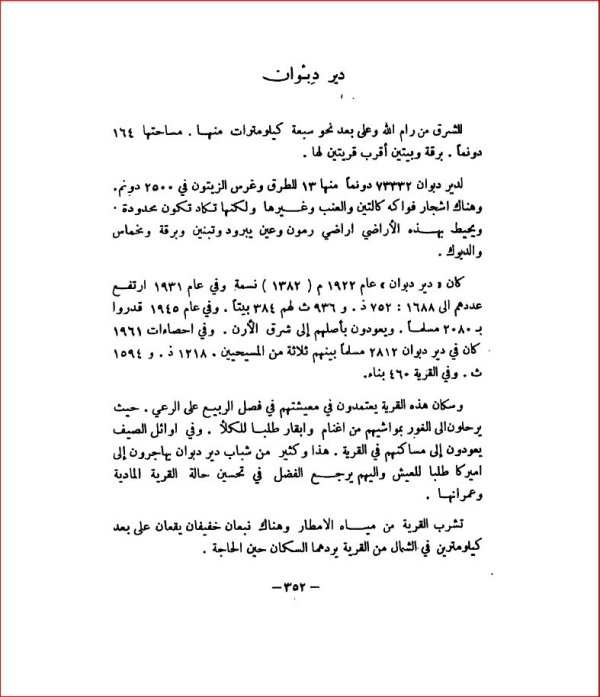 دير دِبْوان
للشرق من رام الله وعلى بعد نحو سبعة كيلومترات منها . مساحتها ١٦٤
دونماً . برقة وبيتين أقرب قريتين لها .
لدير دبوان ٧٣٣٣٢ دونماً منها ١٣ للطرق وغرس الزيتون في ٢٥٠٠ دونم.
وهناك اشجار فواكه كالتين والعنب وغيرها ولكنها تكاد تكون محدودة .
ويحيط بهذه الأراضي اراضي رمون وعين يبرود وتبنين وبرقة ومخماس
والديوك .
كان « دير دبوان » عام ١٩٢٢ م ( ١٣٨٢ ) نسمة وفي عام ١٩٣١ ارتفع
عددهم الى ١٦٨٨ : ٧٥٢ ذ . و ٩٣٦ ث لهم ٣٨٤ بيتاً . وفي عام ١٩٤٥ قدروا
بـ ٢٠٨٠ مسلماً . ويعودون بأصلهم إلى شرق الأرن . وفي احصاءات ١٩٦١
كان في دير دبوان ٢٨١٢ مسلماً بينهم ثلاثة من المسيحيين . ١٢١٨ ذ . و ١٥٩٤
ث . وفي القرية ٤٦٠ بناء.
وسكان هذه القرية يعتمدون في معيشتهم في فصل الربيع على الرعي . حيث
يرحلون الى الغور بمواشيهم من اغنام وابقار طلبا للكلأ . وفي اوائل الصيف
يعودون إلى مساكنهم في القرية . هذا وكثير من شباب دير دبوان يهاجرون إلى
اميركا طلبا للعيش واليهم يرجع الفضل في تحسين حالة القرية المادية
وعمرانها .
تشرب القرية من مياه الامطار وهناك نبعان خفيفان يقعان على بعد
كيلومترين في الشمال من القرية يردهما السكان حين الحاجة .
— ٣٥٢ —